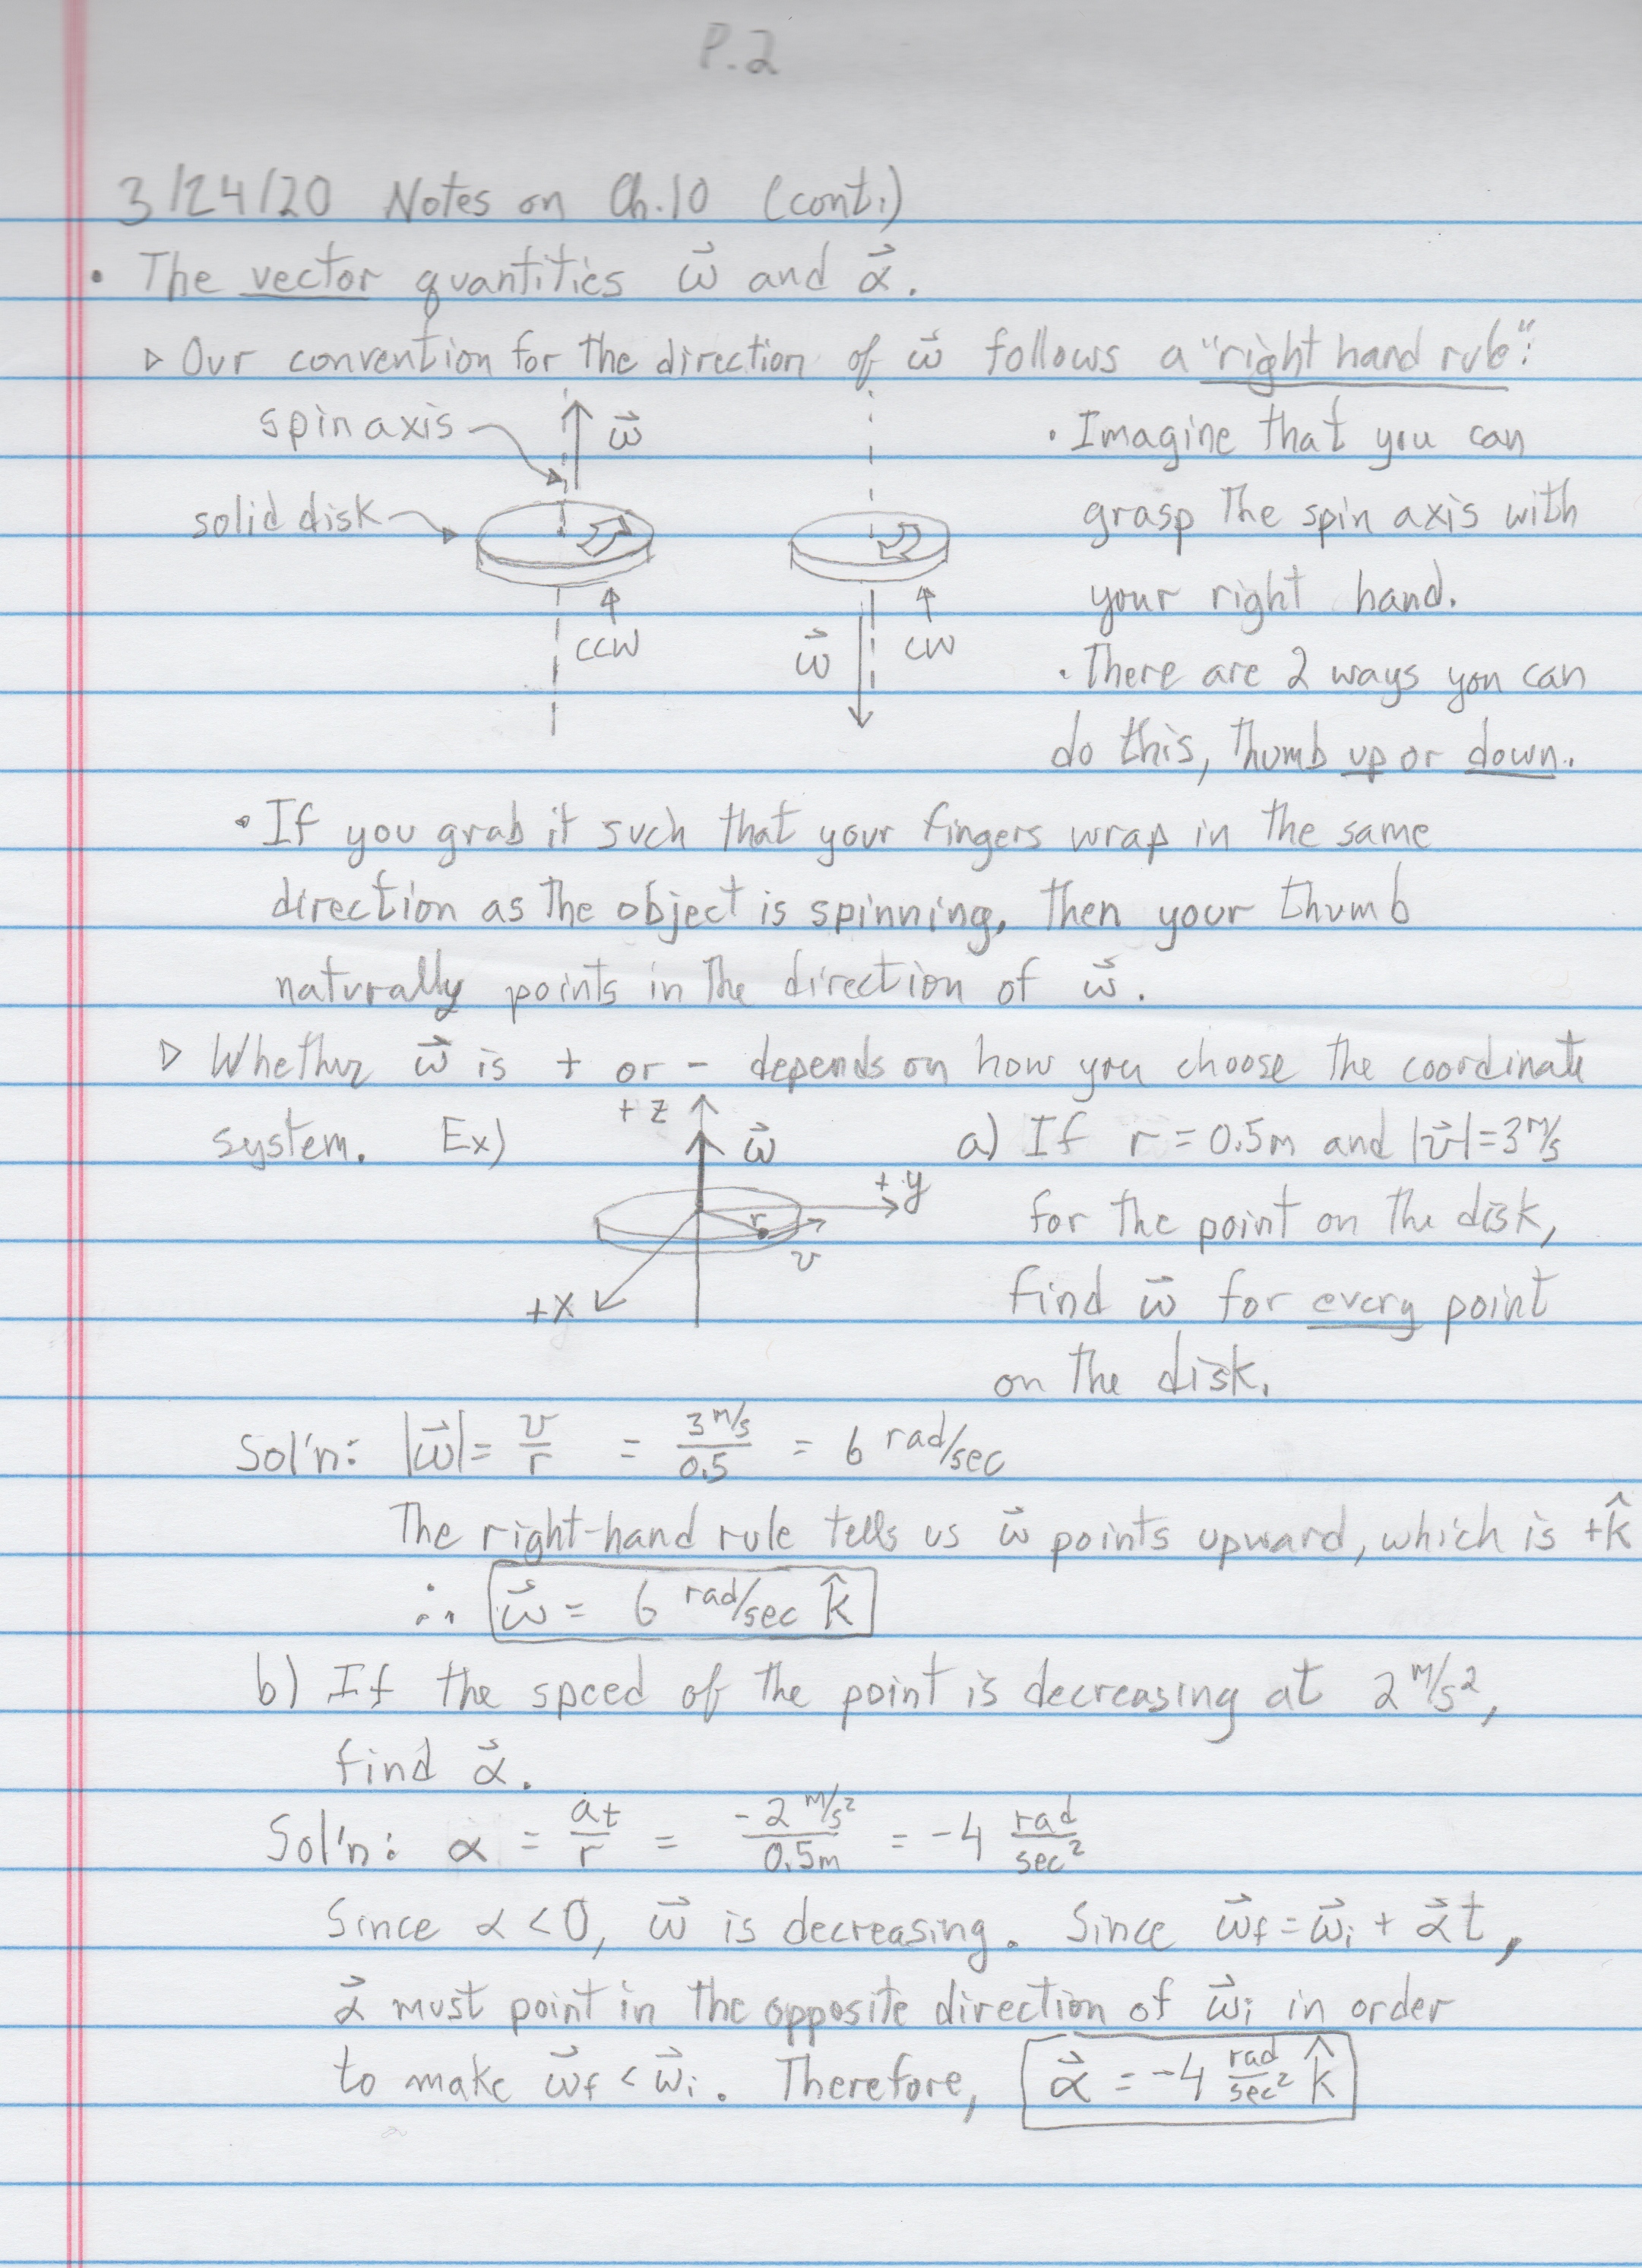 P.2
3/24/20 Notes on Ch.10 (cont.)
• The vector quantities ω⃗ and α⃗.
▷ Our convention for the direction of ω⃗ follows a "right hand rule":
spin axis
ω⃗
solid disk
CCW
ω⃗
CW
• Imagine that you can
grasp the spin axis with
your right hand.
• There are 2 ways you can
do this, thumb up or down.
• If you grab it such that your fingers wrap in the same
direction as the object is spinning, then your thumb
naturally points in the direction of ω⃗.
▷ Whether ω⃗ is + or - depends on how you choose the coordinate
system. Ex)
+z
ω⃗
+y
r
v
+x
a) If r = 0.5m and |v⃗| = 3 m/s
for the point on the disk,
find ω⃗ for every point
on the disk.
Sol'n: |ω⃗| = v/r = 3 m/s / 0.5 = 6 rad/sec
The right-hand rule tells us ω⃗ points upward, which is +k̂
∴ ω⃗ = 6 rad/sec k̂
b) If the speed of the point is decreasing at 2 m/s²,
find α⃗.
Sol'n: α = at/r = -2 m/s² / 0.5m = -4 rad/sec²
Since α < 0, ω⃗ is decreasing. Since ω⃗f = ω⃗i + α⃗t,
α⃗ must point in the opposite direction of ω⃗i in order
to make ω⃗f < ω⃗i. Therefore, α⃗ = -4 rad/sec² k̂